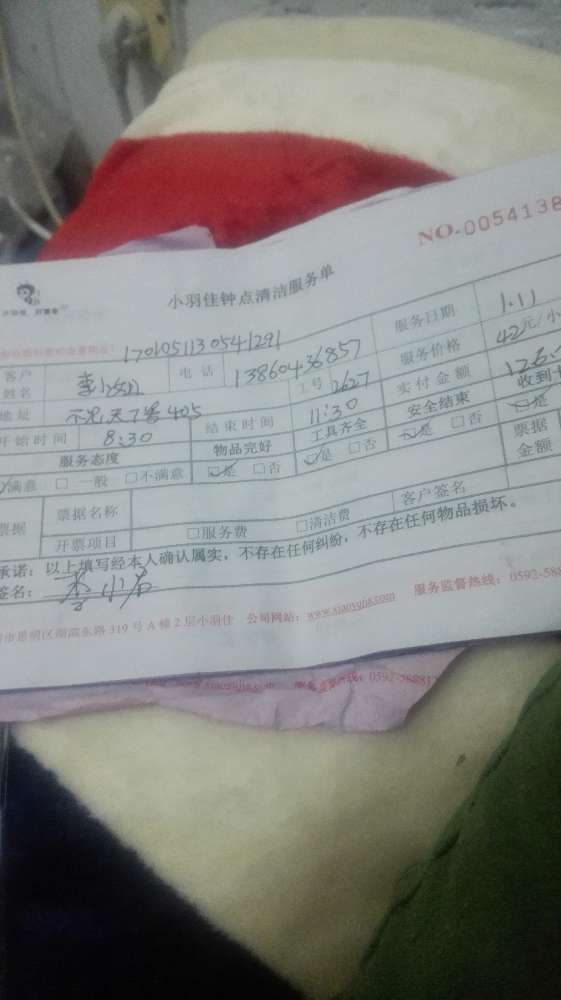 NO.0054138
小羽佳钟点清洁服务单
1701051130541291
服务日期 1.11
客户姓名 电话 13860436857 服务价格 42元/小
地址 不见天7客405 工号 2627 实付金额 126
开始时间 8:30 结束时间 11:30 安全结束 收到
服务态度 物品完好 工具齐全 ☑是 □否 ☑是
满意 □一般 □不满意 ☑是 □否 ☑是 □否 票据金额
票据 票据名称 客户签名
开票项目 □服务费 □清洁费
承诺：以上填写经本人确认属实，不存在任何纠纷，不存在任何物品损坏。
签名：
市思明区湖滨东路 319 号 A 幢 2 层小羽佳 公司网站：www.xiaoyujia.com 服务监督热线：0592-588
www.xiaoyujia.com 0592-58881